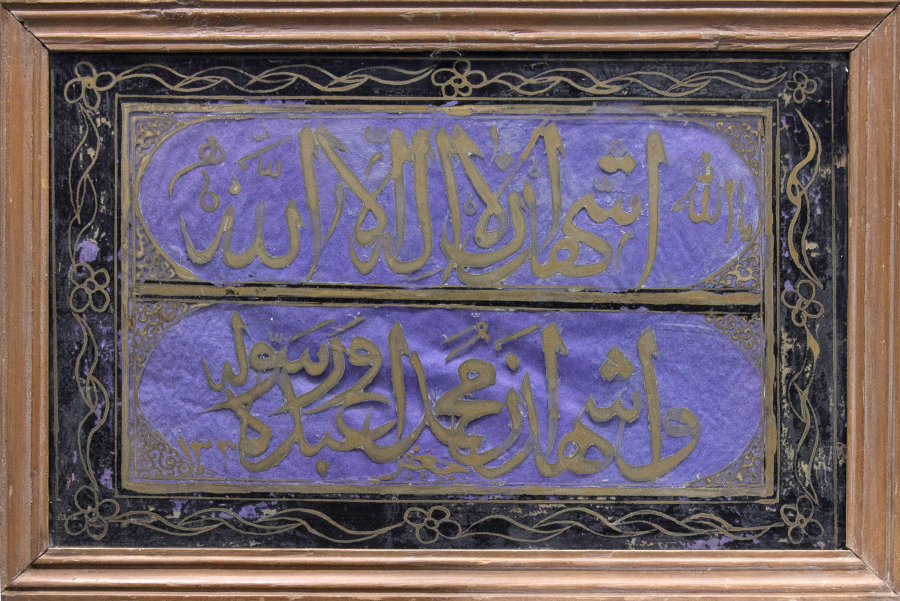 يا الله اشهد ان لا اله الا الله
واشهد ان محمد عبده ورسوله
١٣٢٠